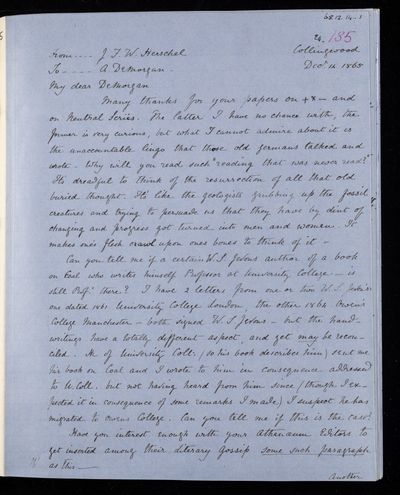 68.12.14.1
24 185
From.... J F W Herschel
Collingwood
To ..... A DeMorgan.
Decr 14 1868
My dear DeMorgan
Many thanks for your papers on + x − and
on Neutral Series. The latter I have no chance with, the
former is very curious, but what I cannot admire about it is
the unaccountable lingo that those old germans talked and
wrote - Why will you read such "reading that was never read?"
It's dreadful to think of the resurrection of all that old
buried thought. It's like the geologists grubbing up the fossil
creatures and trying to persuade us that they have by dint of
changing and progress got turned into men and women. It
makes one's flesh crawl upon ones bones to think of it -
Can you tell me if a certain W. S. Jevons author of a book
on Coal who writes himself Professor at University College - is
still Profr there? I have 2 letters from one or two W. S. Jevons's
one dated 1861 University College London, the other 1864 Owen's
College Manchester - both signed W. S. Jevons - but the hand-
writings have a totally different aspect, and yet may be recon-
ciled. He of University Coll. (so his book describes him) sent me
his book on Coal and I wrote to him in consequence addressed
to U. Coll. but not having heard from him since (though I ex-
pected it in consequence of some remarks I made) I suspect he has
migrated to Owens College. Can you tell me if this is the case?
Have you interest enough with your Athenaeum Editors to
get inserted among their literary Gossip some such paragraph
as this -
Another